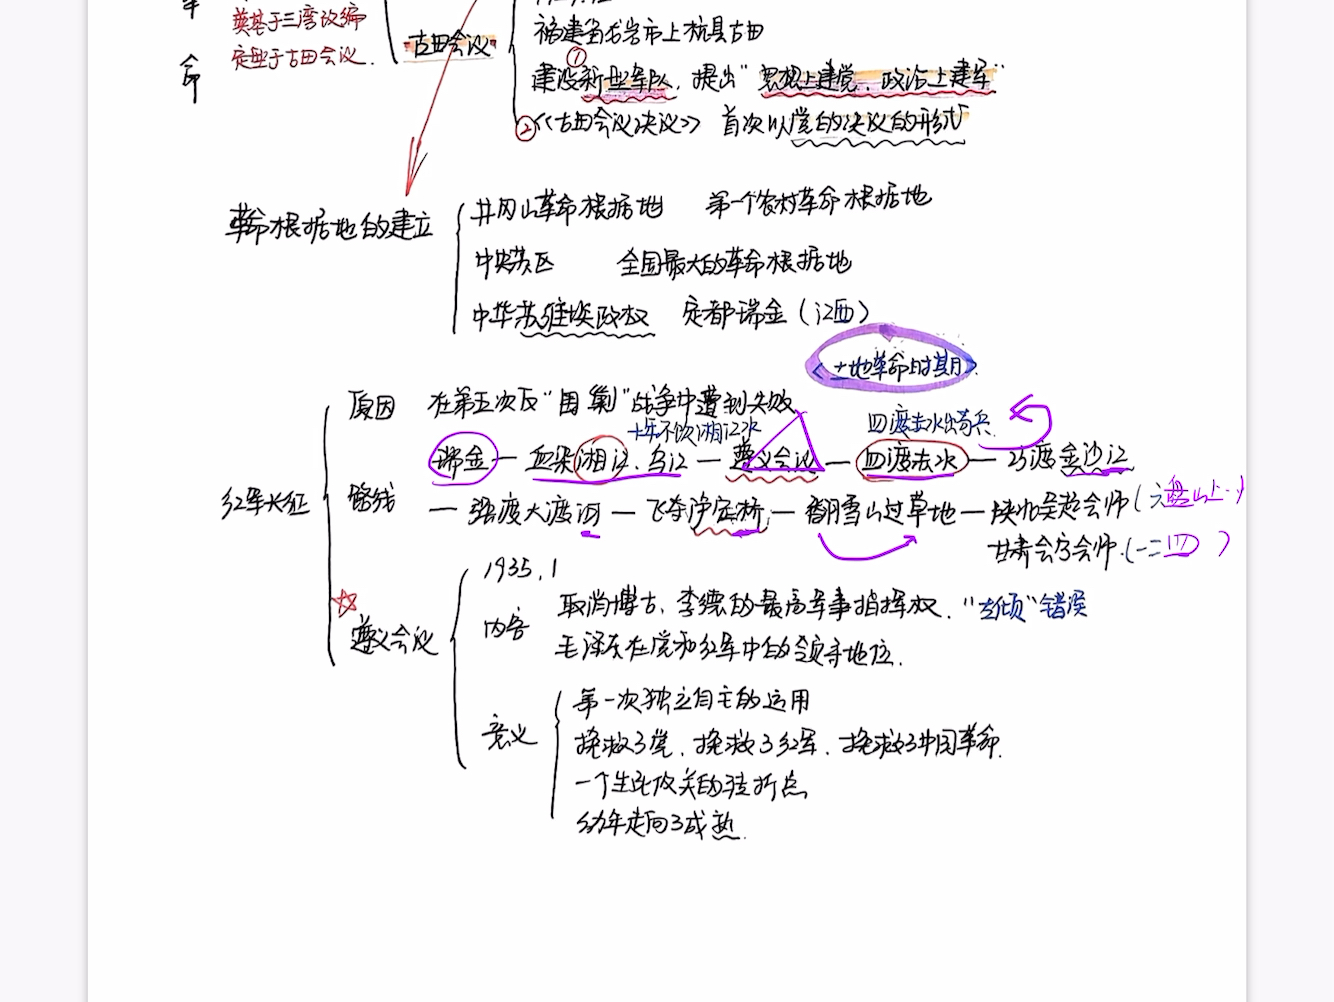 奠基于三湾改编
定型于古田会议.
命
"古田会议"
福建省龙岩市上杭县古田
① 建设新型军队, 提出"思想上建党、政治上建军"
②《古田会议决议》 首次以党的决议的形式
革命根据地的建立
井冈山革命根据地 第一个农村革命根据地
中央苏区 全国最大的革命根据地
中华苏维埃政权 定都瑞金(江西)
土地革命时期
红军长征
原因 在第五次反"围剿"战争中遭到失败
不饮湘江水
四渡赤水出奇兵
路线
瑞金—血染湘江、乌江—遵义会议—四渡赤水—巧渡金沙江
—强渡大渡河—飞夺泸定桥,—翻雪山过草地—陕北吴起会师(
甘肃会宁会师.(一二四)
遵义会议
1935.1
内容 取消博古、李德的最高军事指挥权. "左倾"错误
毛泽东在党和红军中的领导地位.
意义 第一次独立自主的运用
挽救了党、挽救了红军、挽救了中国革命.
一个生死攸关的转折点
幼年走向了成熟.